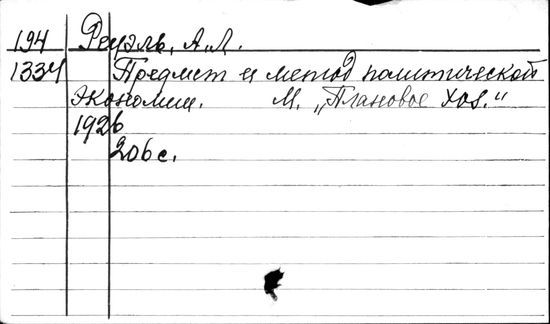 194 Реуэль, А.Л.
1334 Предмет и метод политической
экономии. М. „Плановое хоз.“
1926
206 с.